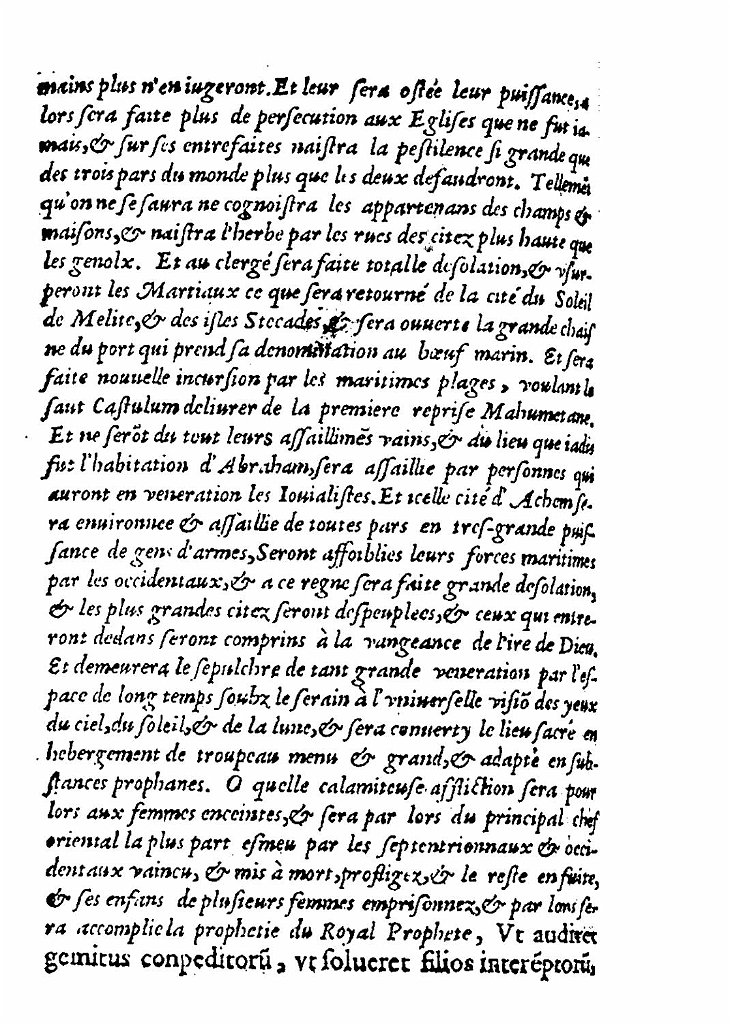 mains plus n'en iugeront. Et leur ſera oſtée leur puiſſance, &
lors ſera faite plus de perſecution aux Egliſes que ne fut ia-
mais, & ſur ſes entrefaites naiſtra la peſtilence ſi grande que
des trois pars du monde plus que les deux defaudront. Tellemẽt
qu'on ne ſe ſaura ne cognoiſtra les appartenans des champs &
maiſons, & naiſtra l'herbe par les rues des citez plus haute que
les genolx. Et au clergé ſera faite totalle deſolation, & vſur-
peront les Martiaux ce que ſera retourné de la cité du Soleil
de Melite, & des iſles Stecades, & ſera ouuerte la grande chaiſ
ne du port qui prend ſa denomination au bœuf marin. Et ſera
faite nouuelle incurſion par les maritimes plages, voulant le
ſaut Caſtulum deliurer de la premiere repriſe Mahumetane.
Et ne ſerõt du tout leurs aſſaillimẽs vains, & du lieu que iadis
fut l'habitation d'Abraham, ſera aſſaillie par perſonnes qui
auront en veneration les Iouialiſtes. Et icelle cité d'Achem ſe-
ra enuironnee & aſſaillie de toutes pars en treſ-grande puiſ-
ſance de gens d'armes, Seront affoiblies leurs forces maritimes
par les occidentaux, & a ce regne ſera faite grande deſolation,
& les plus grandes citez ſeront deſpeuplees, & ceux qui entre-
ront dedans ſeront comprins à la vangeance de l'ire de Dieu.
Et demeurera le ſepulchre de tant grande veneration par l'eſ-
pace de long temps ſoubz le ſerain à l'vniuerſelle viſiõ des yeux
du ciel, du ſoleil, & de la lune, & ſera conuerty le lieu ſacré en
hebergement de troupeau menu & grand, & adapté en ſub-
ſtances prophanes. O quelle calamiteuſe affliction ſera pour
lors aux femmes enceintes, & ſera par lors du principal chef
oriental la plus part eſmeu par les ſeptentrionnaux & occi-
dentaux vaincu, & mis à mort, profligez, & le reſte en fuite,
& ſes enfans de pluſieurs femmes empriſonnez, & par lors ſe-
ra accomplie la prophetie du Royal Prophete, Vt audiret
gemitus conpeditorũ, vt ſolueret filios interẽptorũ,